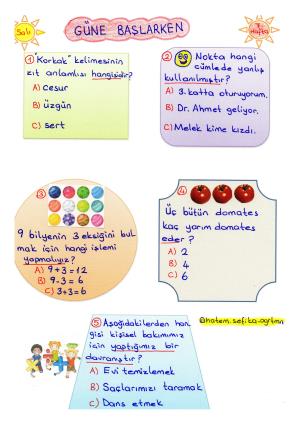 GÜNE BAŞLARKEN
Salı
Hafta
1 "Korkak" kelimesinin
zıt anlamlısı hangisidir?
A) cesur
B) üzgün
C) sert
2 Nokta hangi
cümlede yanlış
kullanılmıştır?
A) 3. katta oturuyorum.
B) Dr. Ahmet geliyor.
C) Melek kime kızdı.
3
9 bilyenin 3 eksiğini bul
mak için hangi işlemi
yapmalıyız?
A) 9+3=12
B) 9-3=6
C) 3+3=6
4
Üç bütün domates
kaç yarım domates
eder?
A) 2
B) 4
C) 6
5 Aşağıdakilerden han
gisi kişisel bakımımız
için yaptığımız bir
davranıştır?
A) Evi temizlemek
B) Saçlarımızı taramak
C) Dans etmek
@hatem.sefika-ogrtmn